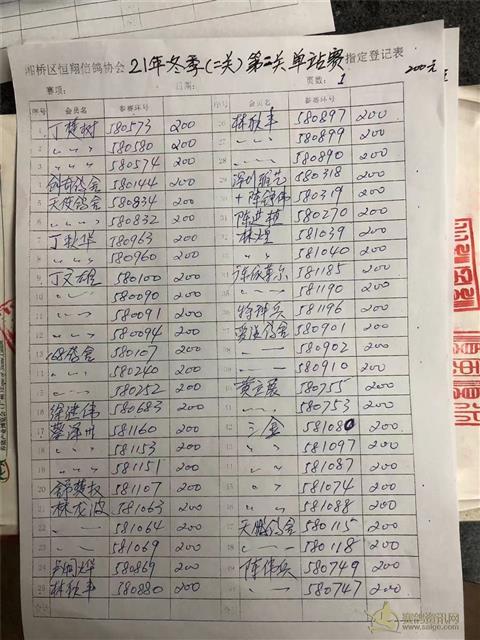 湘桥区恒翔信鸽协会 21年冬季(二关)第二关单站赛指定登记表
赛项: 日期: 页数: 1 200元
序号 会员名 参赛环号 序号 会员名 参赛环号
1 丁楚树 580573 200 26 林欣丰 580897 200
2 〃 〃 〃 580580 200 27 〃 — 〃 580899 200
3 〃 〃 〃 580574 200 28 〃 — 〃 580890 200
4 创奇鸽舍 580144 200 29 580318 200
5 天使鸽舍 580834 200 30 +陈锦伟 580319 200
6 〃 〃 〃 580832 200 31 580270 200
7 丁秋华 580963 200 32 林煜 581039 200
8 〃 〃 〃 580960 200 33 〃 〃 581040 200
9 丁文雄 580100 200 581185 200
10 〃 — 〃 580090 200 〃 — 〃 581190 200
11 〃 — 〃 580091 200 36 特种兵 581196 200
12 〃 〃 580094 200 37 580901 200
13 168鸽舍 580107 200 〃 — 580902 200
14 〃 〃 580240 200 〃 — 〃 580910 200
15 〃 〃 580252 200 580755 200
16 徐洪伟 580683 200 〃 — 580753 200
17 蔡泽州 581160 200 42 三金 581080 200
18 〃 〃 581153 200 〃 〃 581097 200
19 〃 〃 581151 200 〃 〃 581087 200
20 舒楚权 581107 200 〃 〃 581074 200
21 林龙波 581063 200 〃 〃 581088 200
22 〃 — 〃 581064 200 47 天鹏鸽舍 580115 200
23 〃 — 〃 581069 200 〃 — 〃 580118 200
24 580869 200 陈伟滨 580749 200
25 林欣丰 580880 200 〃 — 〃 580747 200
赛鸽资讯网
www.saige.com